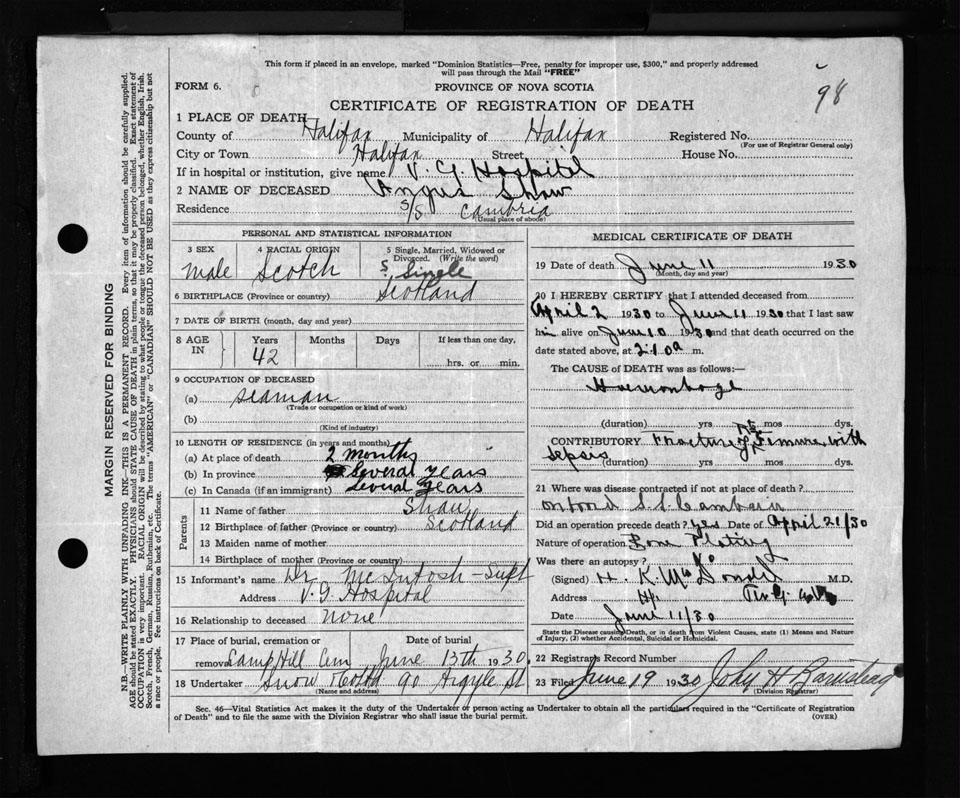 This form if placed in an envelope, marked "Dominion Statistics—Free, penalty for improper use, $300," and properly addressed
will pass through the Mail "FREE"
98
FORM 6.
PROVINCE OF NOVA SCOTIA
CERTIFICATE OF REGISTRATION OF DEATH
1 PLACE OF DEATH
County of Halifax Municipality of Halifax Registered No.
(For use of Registrar General only)
City or Town Halifax Street House No.
If in hospital or institution, give name V. G. Hospital
2 NAME OF DECEASED Angus Shaw
Residence S/S Cambria
(Usual place of abode)
PERSONAL AND STATISTICAL INFORMATION
3 SEX 4 RACIAL ORIGIN 5 Single, Married, Widowed or
Divorced. (Write the word)
male Scotch S. Single
6 BIRTHPLACE (Province or country) Scotland
7 DATE OF BIRTH (month, day and year)
8 AGE IN Years Months Days If less than one day,
42 hrs. or min.
9 OCCUPATION OF DECEASED
(a) seaman
(Trade or occupation or kind of work)
(b)
(Kind of industry)
10 LENGTH OF RESIDENCE (in years and months)
(a) At place of death 2 months
(b) In province Several years
(c) In Canada (if an immigrant) Several years
Parents
11 Name of father Shaw
12 Birthplace of father (Province or country) Scotland
13 Maiden name of mother
14 Birthplace of mother (Province or country)
15 Informant's name Dr McIntosh - Supt
Address V. G. Hospital
16 Relationship to deceased None
17 Place of burial, cremation or Date of burial
removal Camp Hill Cem June 13th 1930.
18 Undertaker Snow & Co Ltd 90 Argyle St
(Name and address)
MEDICAL CERTIFICATE OF DEATH
19 Date of death June 11 1930
(Month, day and year)
20 I HEREBY CERTIFY that I attended deceased from
April 2 1930 to June 11 1930 that I last saw
him alive on June 10 1930 and that death occurred on
the date stated above, at 2.10 a m.
The CAUSE OF DEATH was as follows:—
Haemorrhage
(duration) yrs mos dys.
CONTRIBUTORY Fracture of Rt Femur with
sepsis (duration) yrs. mos dys.
21 Where was disease contracted if not at place of death?
on board S. S. Cambria
Did an operation precede death? yes Date of April 21/30
Nature of operation Bone Plating
Was there an autopsy? No
(Signed) H. K. McDonald M.D.
Address
Date June 11/30
State the Disease causing Death, or in death from Violent Causes, state (1) Means and Nature
of Injury, (2) whether Accidental, Suicidal or Homicidal.
22 Registrar's Record Number
23 Filed June 19 1930 John H Barnstead
(Division Registrar)
Sec. 46—Vital Statistics Act makes it the duty of the Undertaker or person acting as Undertaker to obtain all the particulars required in the "Certificate of Registration
of Death" and to file the same with the Division Registrar who shall issue the burial permit. (OVER)
MARGIN RESERVED FOR BINDING
N.B.—WRITE PLAINLY WITH UNFADING INK—THIS IS A PERMANENT RECORD. Every item of information should be carefully supplied.
AGE should be stated EXACTLY. PHYSICIANS should STATE CAUSE OF DEATH in plain terms, so that it may be properly classified. Exact statement of
OCCUPATION is very important. RACIAL ORIGIN will be described by stating to what people or tongue the deceased person belonged, whether English, Irish,
Scotch, French, German, Russian, Ruthenian, etc. The terms "AMERICAN" or "CANADIAN" SHOULD NOT BE USED as they express citizenship but not
a race or people. Fee instructions on back of Certificate.